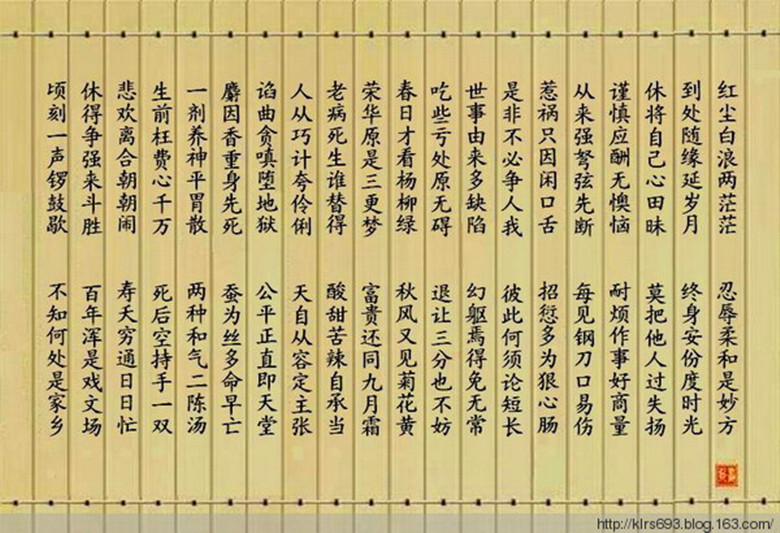 红尘白浪两茫茫 忍辱柔和是妙方
到处随缘延岁月 终身安份度时光
休将自己心田昧 莫把他人过失扬
谨慎应酬无懊恼 耐烦作事好商量
从来强弩弦先断 每见钢刀口易伤
惹祸只因闲口舌 招愆多为狠心肠
是非不必争人我 彼此何须论短长
世事由来多缺陷 幻躯焉得免无常
吃些亏处原无碍 退让三分也不妨
春日才看杨柳绿 秋风又见菊花黄
荣华原是三更梦 富贵还同九月霜
老病死生谁替得 酸甜苦辣自承当
人从巧计夸伶俐 天自从容定主张
谄曲贪嗔堕地狱 公平正直即天堂
麝因香重身先死 蚕为丝多命早亡
一剂养神平胃散 两种和气二陈汤
生前枉费心千万 死后空持手一双
悲欢离合朝朝闹 寿夭穷通日日忙
休得争强来斗胜 百年浑是戏文场
顷刻一声锣鼓歇 不知何处是家乡
http://klrs693.blog.163.com/